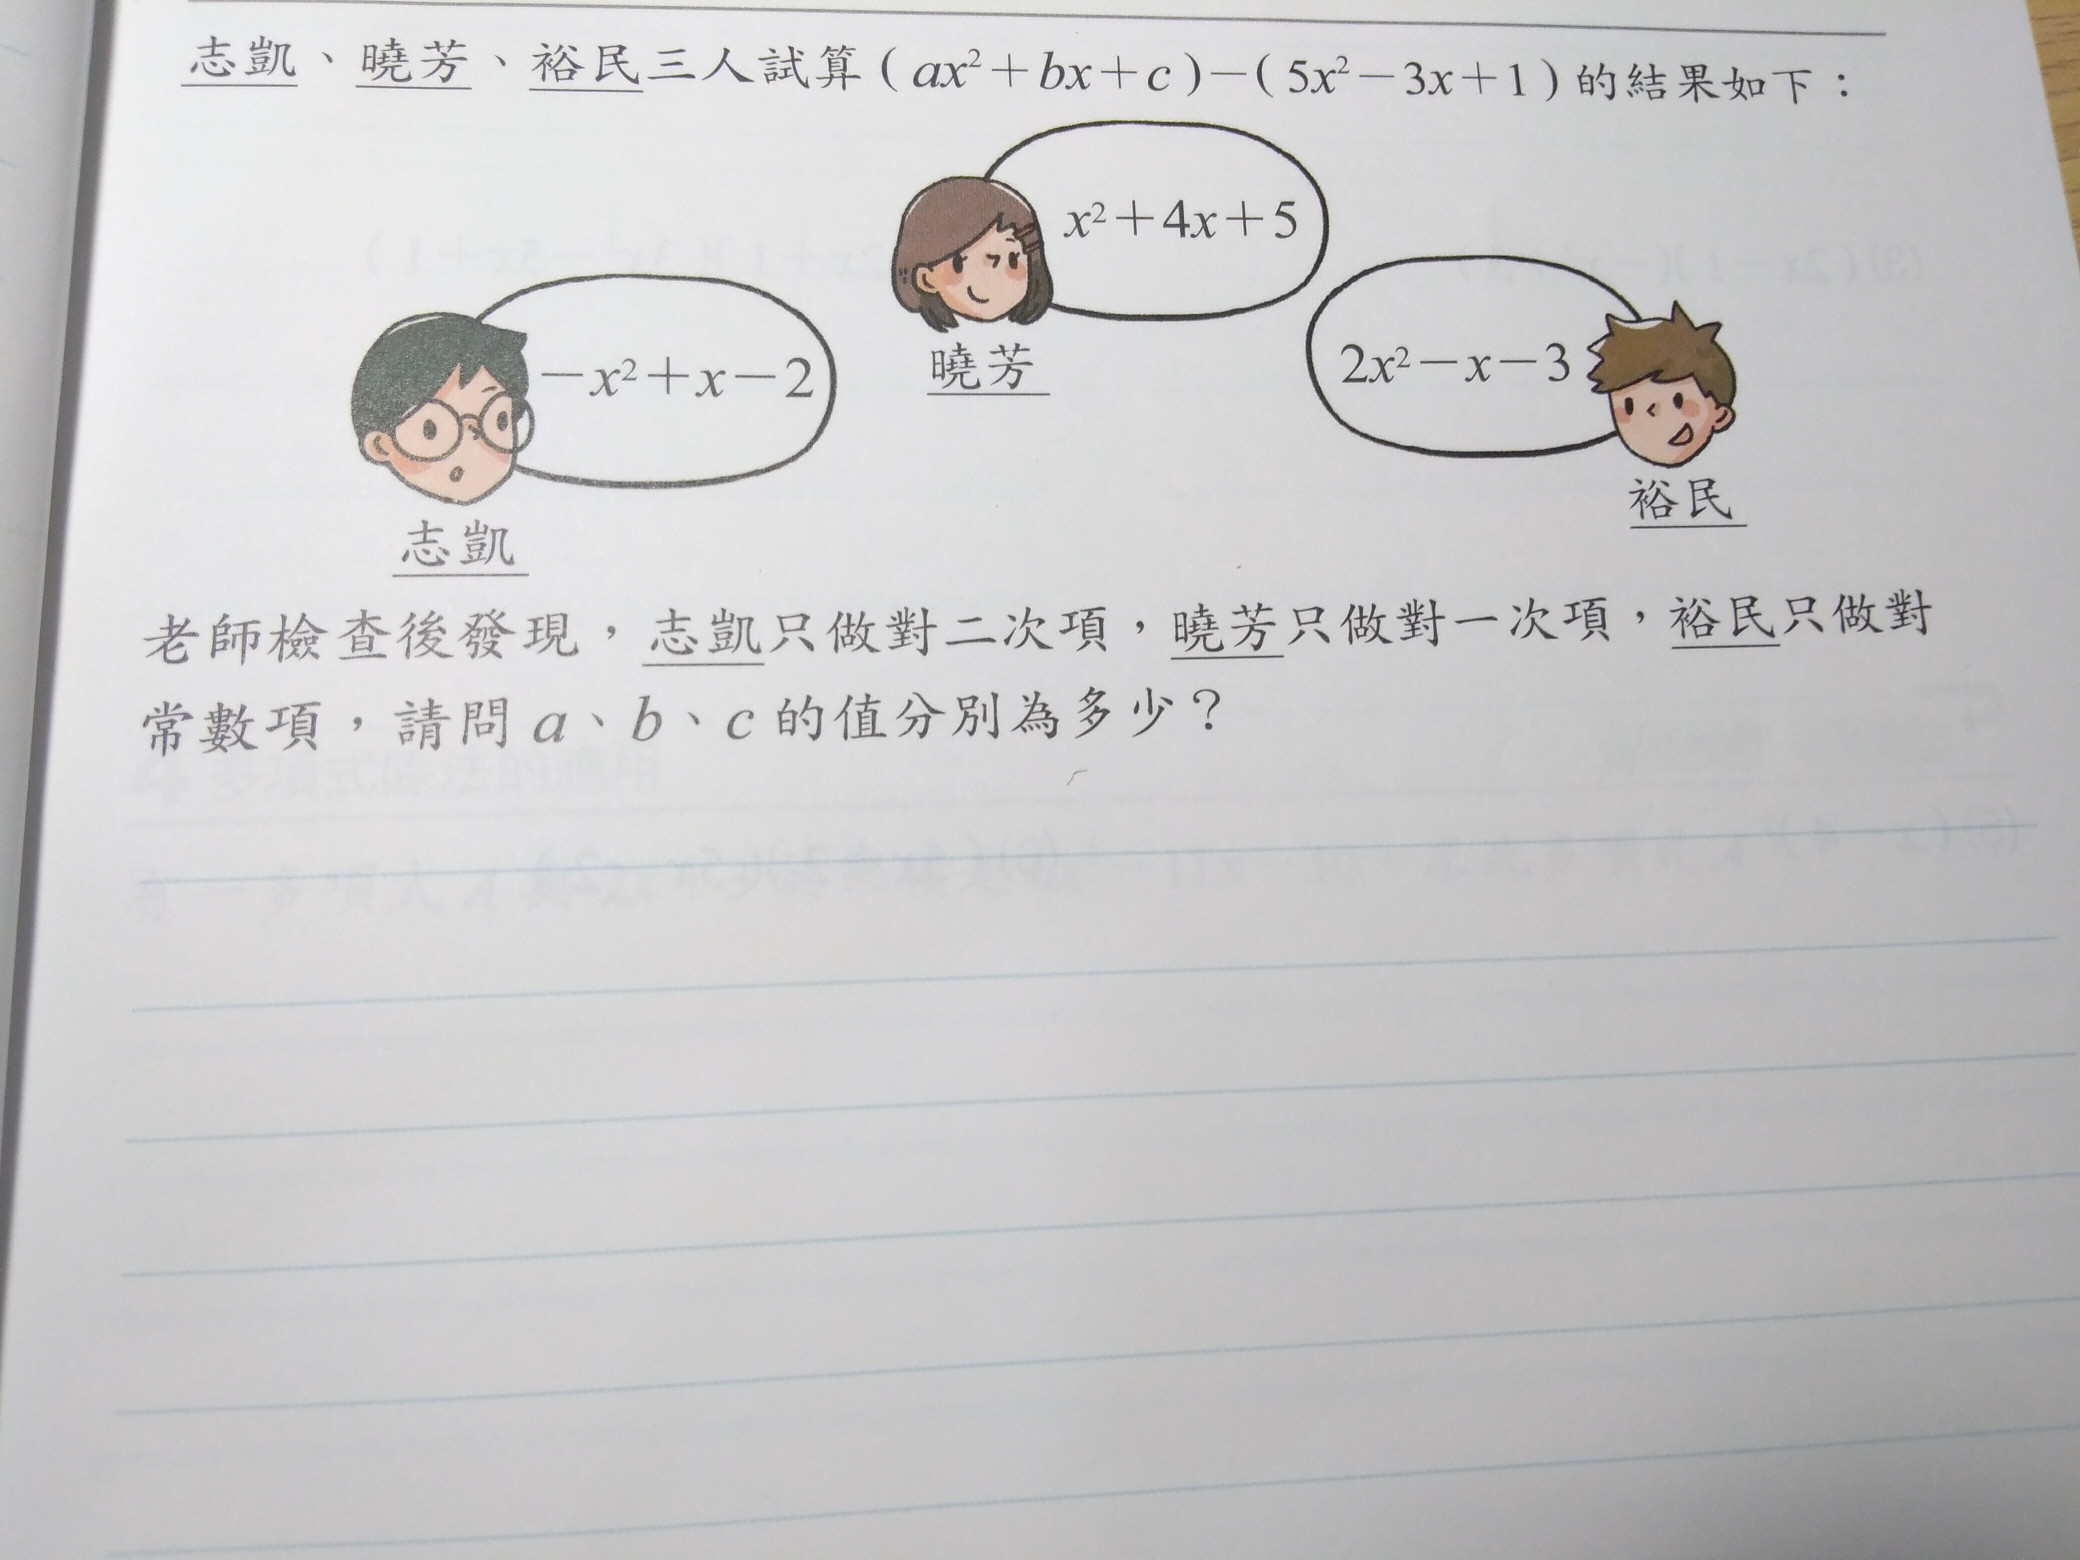 志凱、曉芳、裕民三人試算(ax²+bx+c)-(5x²-3x+1)的結果如下:
x²+4x+5
曉芳
-x²+x-2
志凱
2x²-x-3
裕民
老師檢查後發現,志凱只做對二次項,曉芳只做對一次項,裕民只做對
常數項,請問a、b、c的值分別為多少?